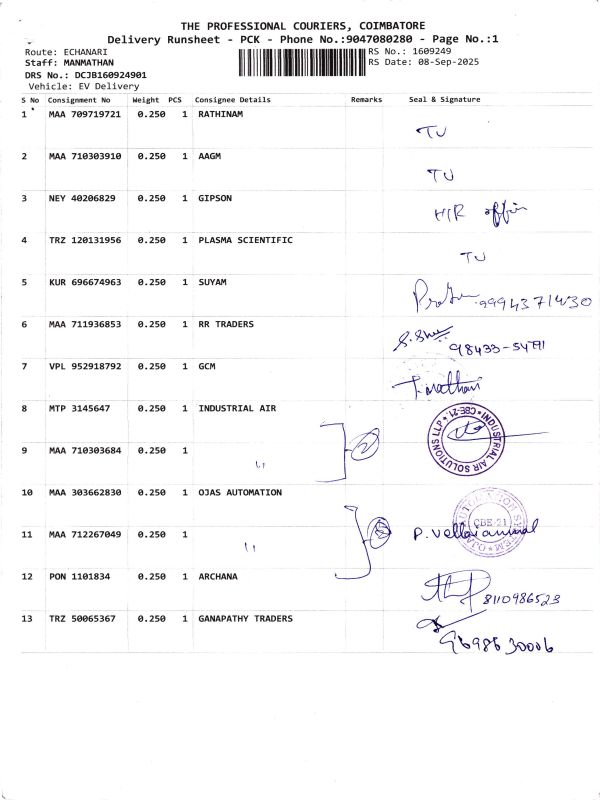 THE PROFESSIONAL COURIERS, COIMBATORE
Delivery Runsheet - PCK - Phone No.:9047080280 - Page No.:1
Route: ECHANARI RS No.: 1609249
Staff: MANMATHAN RS Date: 08-Sep-2025
DRS No.: DCJB160924901
Vehicle: EV Delivery
S No Consignment No Weight PCS Consignee Details Remarks Seal & Signature
1 MAA 709719721 0.250 1 RATHINAM TU
2 MAA 710303910 0.250 1 AAGM TU
3 NEY 40206829 0.250 1 GIPSON H/R office
4 TRZ 120131956 0.250 1 PLASMA SCIENTIFIC TU
5 KUR 696674963 0.250 1 SUYAM 9994371430
6 MAA 711936853 0.250 1 RR TRADERS 98433-54791
7 VPL 952918792 0.250 1 GCM T. Mathavi
8 MTP 3145647 0.250 1 INDUSTRIAL AIR INDUSTRIAL AIR SOLUTIONS LLP * CBE-21. *
9 MAA 710303684 0.250 1 " 2
10 MAA 303662830 0.250 1 OJAS AUTOMATION
11 MAA 712267049 0.250 1 " P. Vellaiammal CBE-21
12 PON 1101834 0.250 1 ARCHANA 8110986523
13 TRZ 50065367 0.250 1 GANAPATHY TRADERS 9698630006